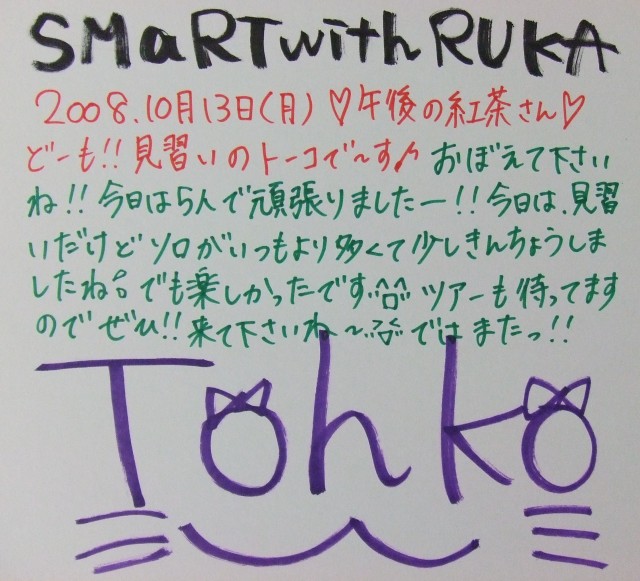 SMaRTwith RUKA
2008.10月13日(月)♡午後の紅茶さん♡
どーも!!見習いのトーコで〜す♪ おぼえて下さい
ね!!今日は5人で頑張りましたー!!今日は、見習
いだけどソロがいつもより多くて少しきんちょうしま
したね。でも楽しかったです ツアーも待ってます
のでぜひ!!来て下さいね〜 ではまたっ!!
Tohko